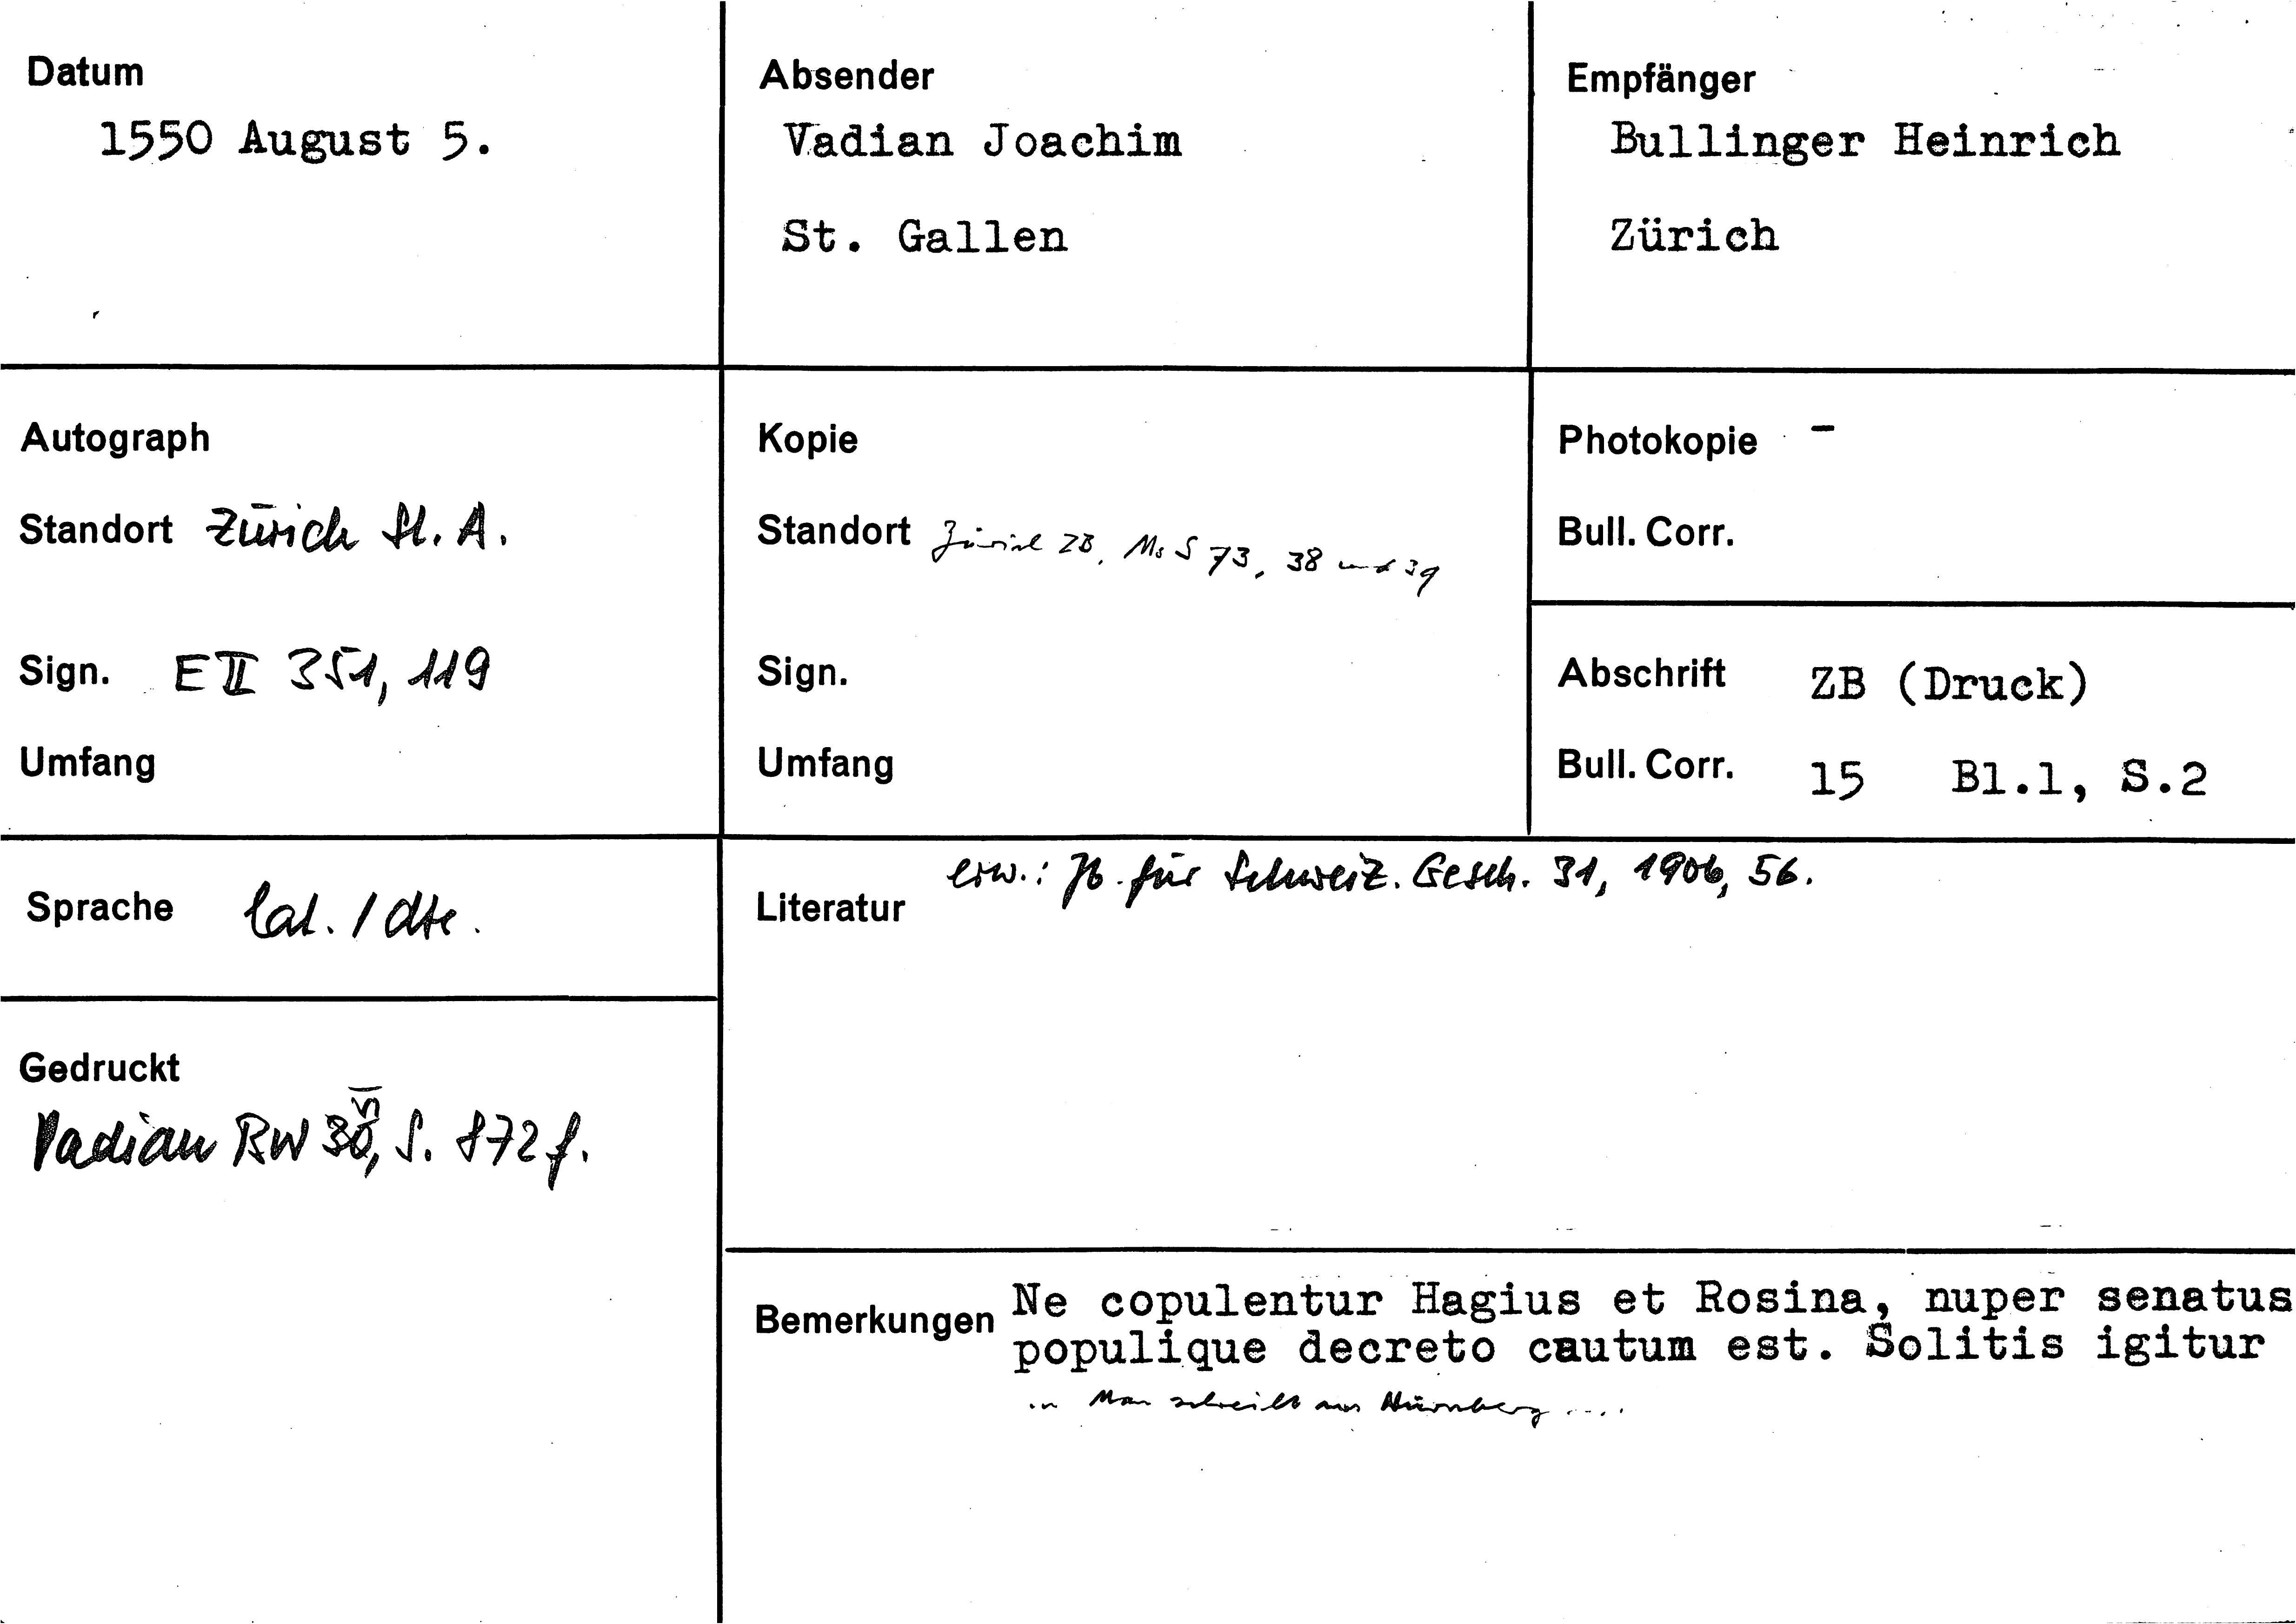 Datum
1550 August 5.
Absender
Vadian Joachim
St. Gallen
Empfänger
Bullinger Heinrich
Zürich
Autograph
Standort Zürich St. A.
Sign. E II 351, 119
Umfang
Kopie
Standort Zürich ZB, Ms S 73, 38 und 39
Sign.
Umfang
Photokopie -
Bull. Corr.
Abschrift ZB (Druck)
Bull. Corr. 15 Bl.1, S.2
Sprache lat. / dte.
Literatur erw.: Jb. für Schweiz. Gesch. 31, 1906, 56.
Gedruckt
Vadian BW VI, S. 872 f.
Bemerkungen Ne copulentur Hagius et Rosina, nuper senatus
populique decreto cautum est. Solitis igitur
Man schreibt aus Nürnberg ....